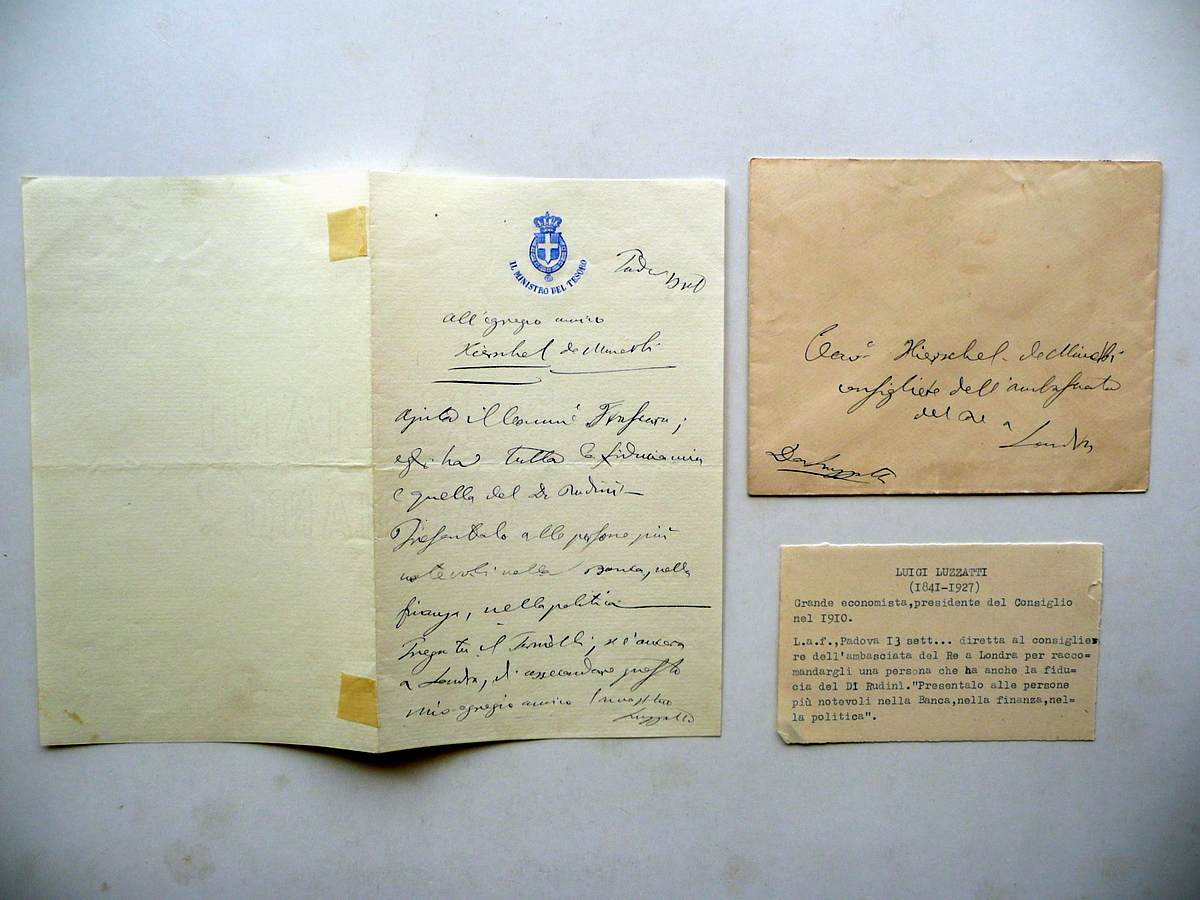 IL MINISTRO DEL TESORO
all'egregio amico
Hierschel de Minerbi
ajuta il
egli ha tutta la fiducia mia
e quella del Di Rudinì —
Presentalo alle persone più
notevoli nella Banca, nella
finanza, nella politica
Prega tu il se è ancora
a Londra, di assecondare questo
mio egregio amico
Luzzatti
Cav. Hierschel de Minerbi
consigliere dell'ambasciata
del Re a
Londra
Da Luzzatti
LUIGI LUZZATTI
(1841-1927)
Grande economista,presidente del Consiglio
nel 1910.
L.a.f.,Padova 13 sett... diretta al consiglie=
re dell'ambasciata del Re a Londra per racco=
mandargli una persona che ha anche la fidu=
cia del DI Rudinì."Presentalo alle persone
più notevoli nella Banca,nella finanza,nel=
la politica".